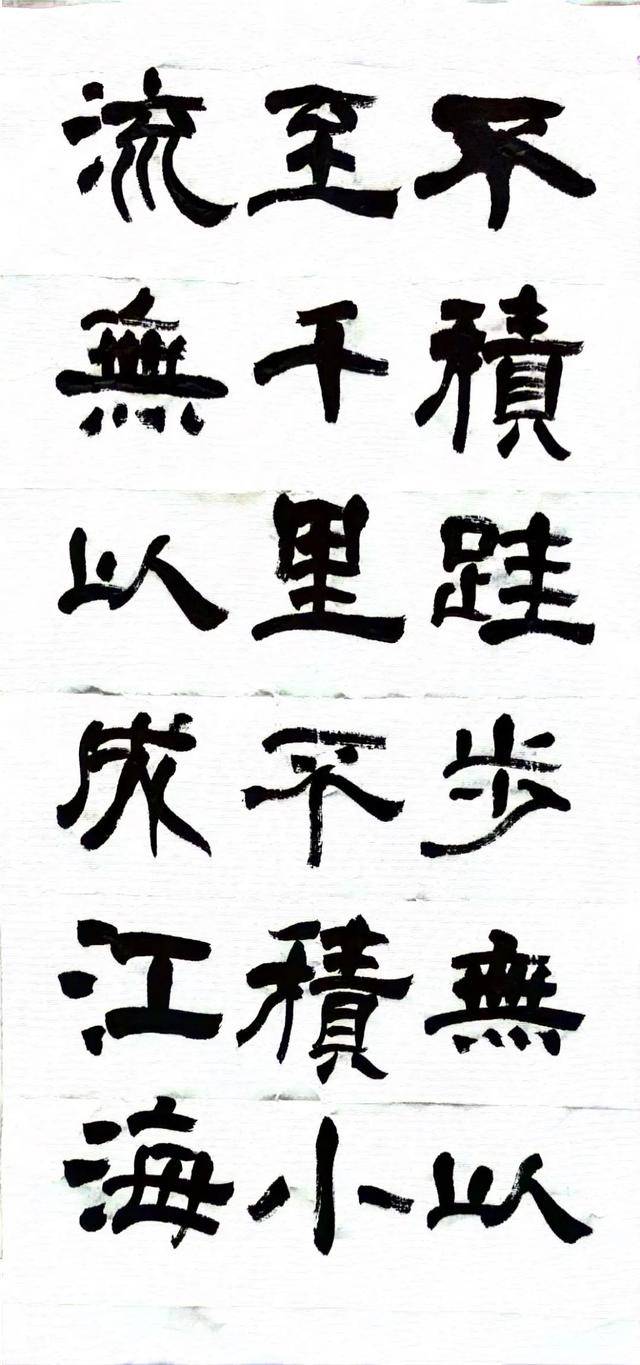 不積跬步無以
至千里不積小
流無以成江海